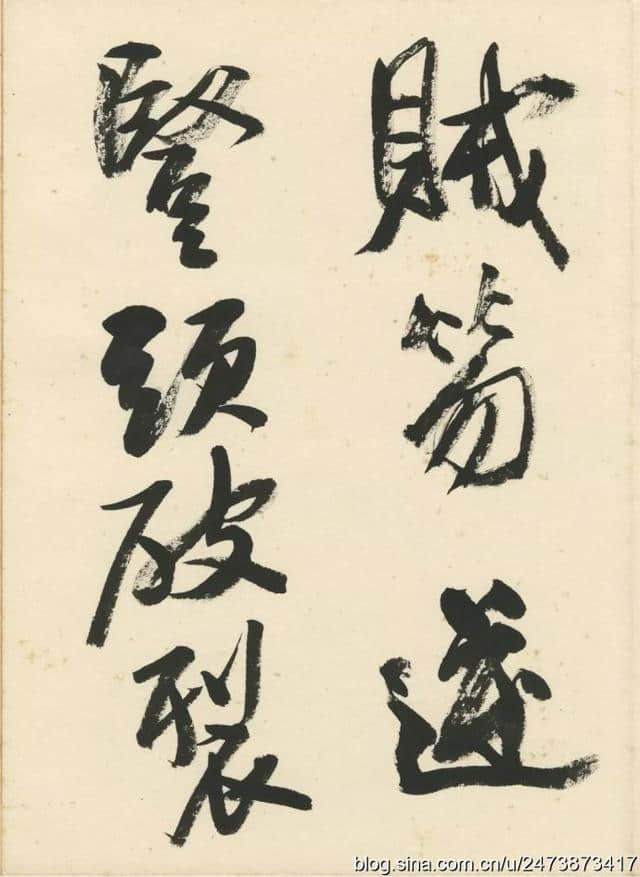 賊笏逆
豎頭破裂
blog.sina.com.cn/u/2473873417